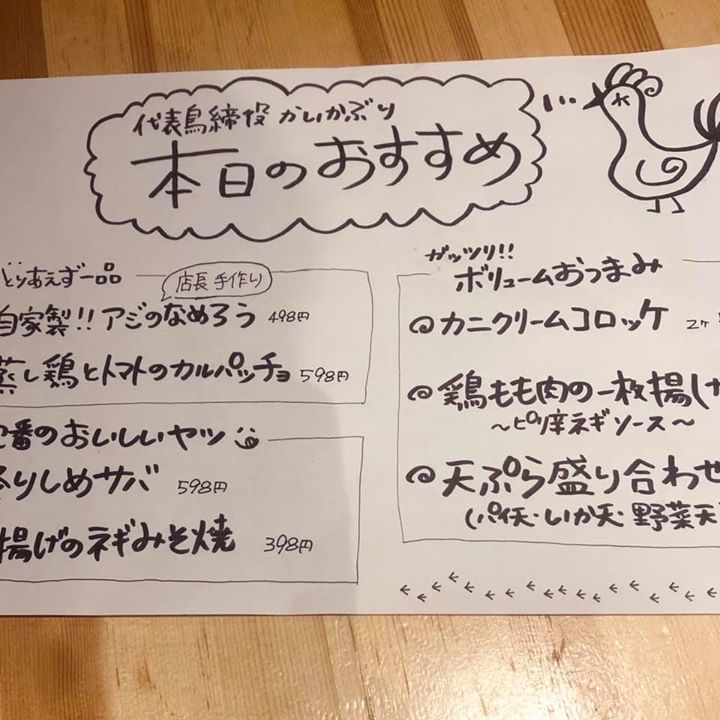 代表鳥締役 かいかぶり
本日のおすすめ
とりあえず一品
店長 手作り
自家製!! アジのなめろう 498円
蒸し鶏とトマトのカルパッチョ 598円
番のおいしいヤツ
りしめサバ 598円
揚げのネギみそ焼 398円
ガッツリ!!
ボリュームおつまみ
カニクリームコロッケ 2ケ
鶏もも肉の一枚揚げ
~ピリ辛ネギソース~
天ぷら盛り合わせ
(パイ天・いか天・野菜天